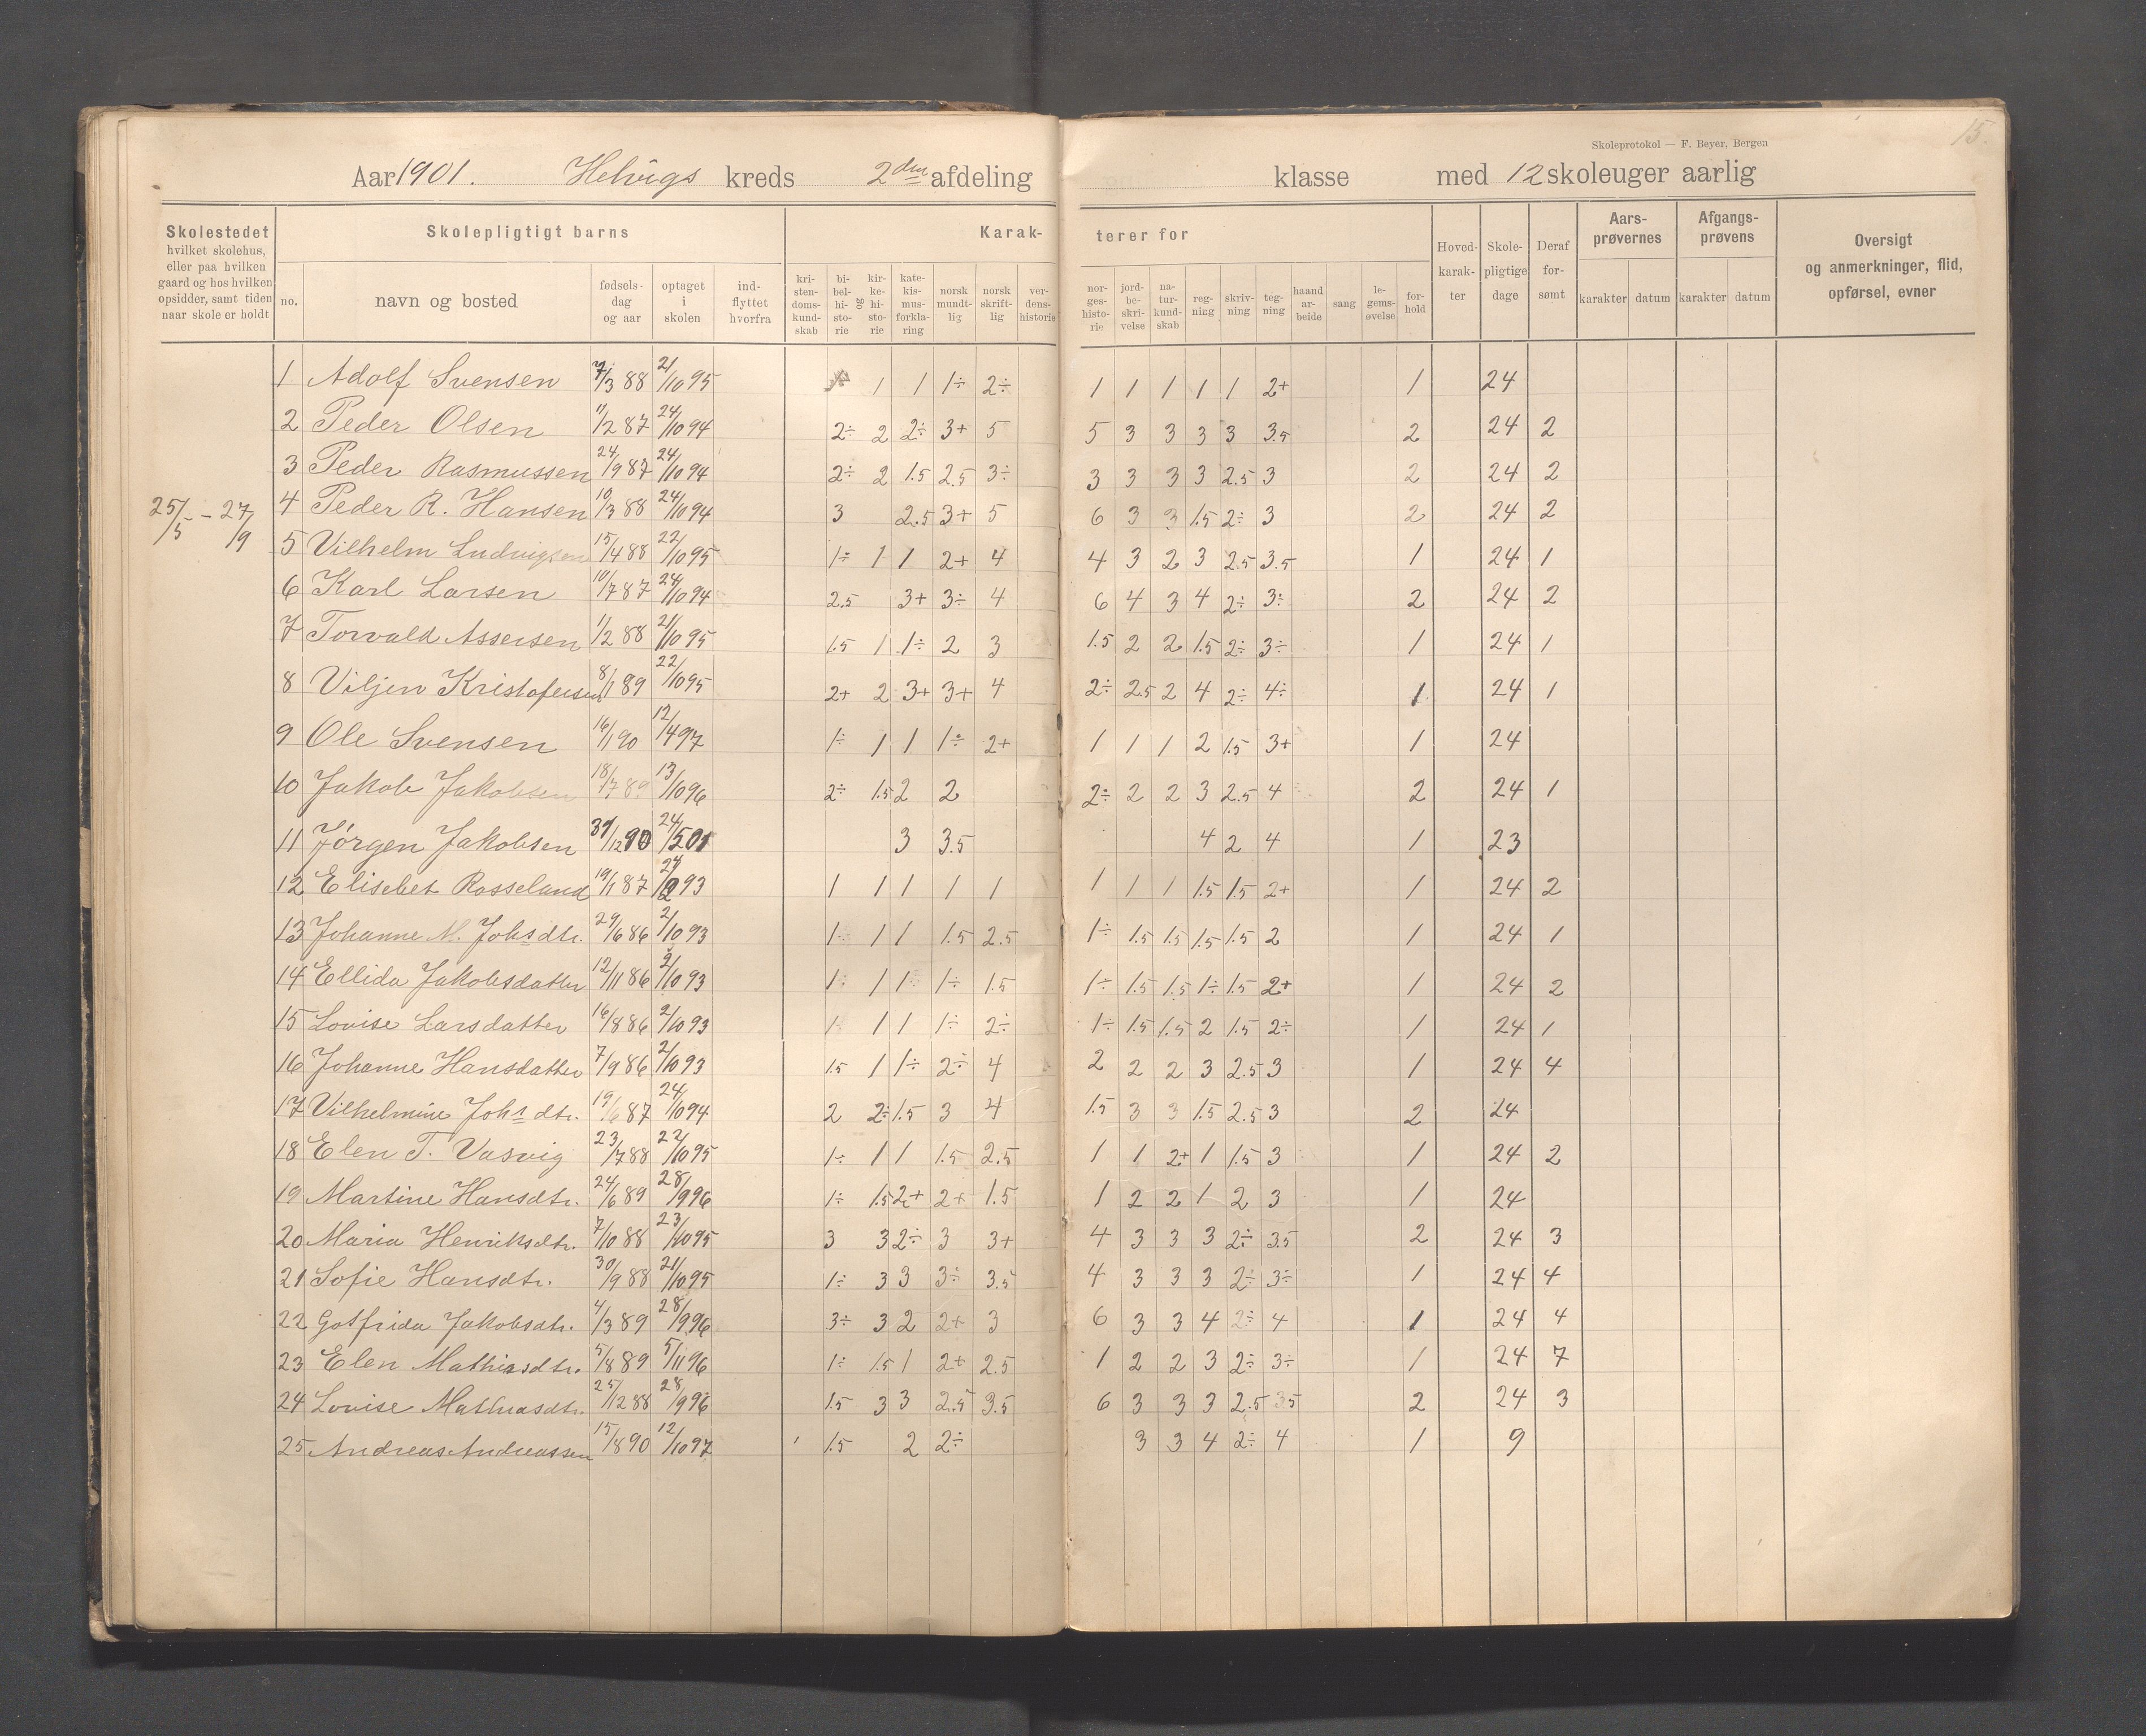 15.
Skoleprotokol — F. Beyer, Bergen
Aar 1901. Helvigs kreds 2den afdeling klasse med 12 skoleuger aarlig
Skolestedet hvilket skolehus, eller paa hvilken gaard og hos hvilken opsidder, samt tiden naar skole er holdt
Skolepligtigt barns
Karak- terer for
no. navn og bosted fødsels- dag og aar optaget i skolen ind- flyttet hvorfra
kri- sten- doms- kund- skab bi- bel- hi- sto- rie og kir- ke- hi- sto- rie kate- kis- mus- forkla- ring norsk mundt- lig norsk skrift- lig ver- dens- historie
nor- ges- histo- rie jord- be- skri- velse na- tur- kund- skab reg- ning skriv- ning teg- ning haand ar- beide sang le- gems- øvelse for- hold
Hoved- karak- ter Skole- pligtige dage Deraf for- sømt
Aars- prøvernes karakter datum Afgangs- prøvens karakter datum
Oversigt og anmerkninger, flid, opførsel, evner
25/5 - 27/9
1 Adolf Svensen 7/3 88 21/10 95 1 1 1÷ 2÷ 1 1 1 1 1 2+ 1 24
2 Peder Olsen 11/2 87 24/10 94 2÷ 2 2÷ 3+ 5 5 3 3 3 3 3.5 2 24 2
3 Peder Rasmussen 24/9 87 24/10 94 2÷ 2 1.5 2.5 3÷ 3 3 3 3 2.5 3 2 24 2
4 Peder R. Hansen 10/3 88 24/10 94 3 2.5 3+ 5 6 3 3 1.5 2÷ 3 2 24 2
5 Vilhelm Ludvigsen 15/4 88 22/10 95 1÷ 1 1 2+ 4 4 3 2 3 2.5 3.5 1 24 1
6 Karl Larsen 10/7 87 24/10 94 2.5 3+ 3÷ 4 6 4 3 4 2÷ 3÷ 2 24 2
7 Torvald Assersen 1/2 88 21/10 95 1.5 1 1÷ 2 3 1.5 2 2 1.5 2÷ 3÷ 1 24 1
8 Viljen Kristofersen 8/1 89 22/10 95 2+ 2 3+ 3+ 4 2÷ 2.5 2 4 2÷ 4÷ 1 24 1
9 Ole Svensen 16/1 90 12/4 97 1÷ 1 1 1÷ 2+ 1 1 1 2 1.5 3+ 1 24
10 Jakob Jakobsen 18/7 89 13/10 96 2÷ 1.5 2 2 2÷ 2 2 3 2.5 4 2 24 1
11 Jørgen Jakobsen 31/12 90 24/5 01 3 3.5 4 2 4 1 23
12 Elisebet Rosseland 19/1 87 93 1 1 1 1 1 1 1 1 1.5 1.5 2+ 1 24 2
13 Johanne M. Johsdtr. 29/6 86 2/10 93 1÷ 1 1 1.5 2.5 1÷ 1.5 1.5 1.5 1.5 2 1 24 1
14 Ellida Jakobsdatter 12/11 86 2/10 93 1÷ 1 1 1÷ 1.5 1÷ 1.5 1.5 1÷ 1.5 2+ 1 24 2
15 Lovise Larsdatter 16/8 86 2/10 93 1 1 1 1÷ 2÷ 1÷ 1.5 1.5 2 1.5 2÷ 1 24 1
16 Johanne Hansdatter 7/9 86 2/10 93 1.5 1 1÷ 2÷ 4 2 2 2 3 2.5 3 1 24 4
17 Vilhelmine Johsdtr. 19/6 87 24/10 94 2 2÷ 1.5 3 4 1.5 3 3 1.5 2.5 3 2 24
18 Elen T. Vasvig 23/7 88 22/10 95 1÷ 1 1 1.5 2.5 1 1 2+ 1 1.5 3 1 24 2
19 Martine Hansdtr. 24/6 89 28/9 96 1÷ 1.5 2+ 2+ 1.5 1 2 2 1 2 3 1 24
20 Maria Henriksdtr. 7/10 88 23/10 95 3 3 2÷ 3 3+ 4 3 3 3 2÷ 3.5 2 24 3
21 Sofie Hansdtr. 30/9 88 21/10 95 1÷ 3 3 3÷ 3.5 4 3 3 3 2÷ 3÷ 1 24 4
22 Gotfrida Jakobsdtr. 4/3 89 28/9 96 3÷ 3 2 2+ 3 6 3 3 4 2÷ 4 1 24 4
23 Elen Mathiasdtr. 5/8 89 5/11 96 1÷ 1.5 1 2+ 2.5 1 2 2 3 2÷ 3÷ 1 24 7
24 Lovise Mathiasdtr. 25/12 88 28/9 96 1.5 3 3 2.5 3.5 6 3 3 3 2.5 3.5 2 24 3
25 Andreas Andreassen 15/8 90 12/10 97 1.5 2 2÷ 3 3 4 2÷ 4 1 9